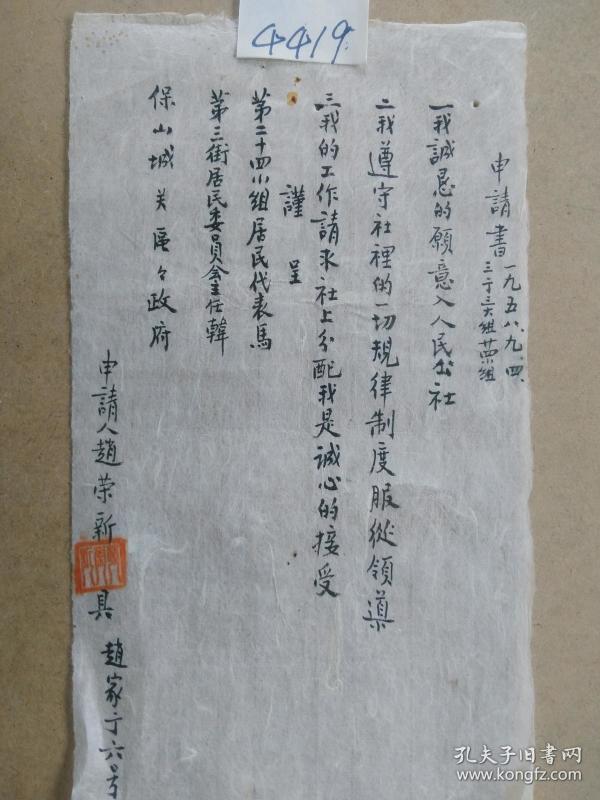 4419
申請書
一九五八、九、四
一我誠恳的願意入人民公社
二我遵守社裡的一切規律制度服從領導
三我的工作請求社上分配我是誠心的接受
謹呈
第二十四小組居民代表馬
第三街居民委員会主任韓
保山城关區々政府
申請人趙荣新 具 趙家亍六号
孔夫子旧书网
www.kongfz.com